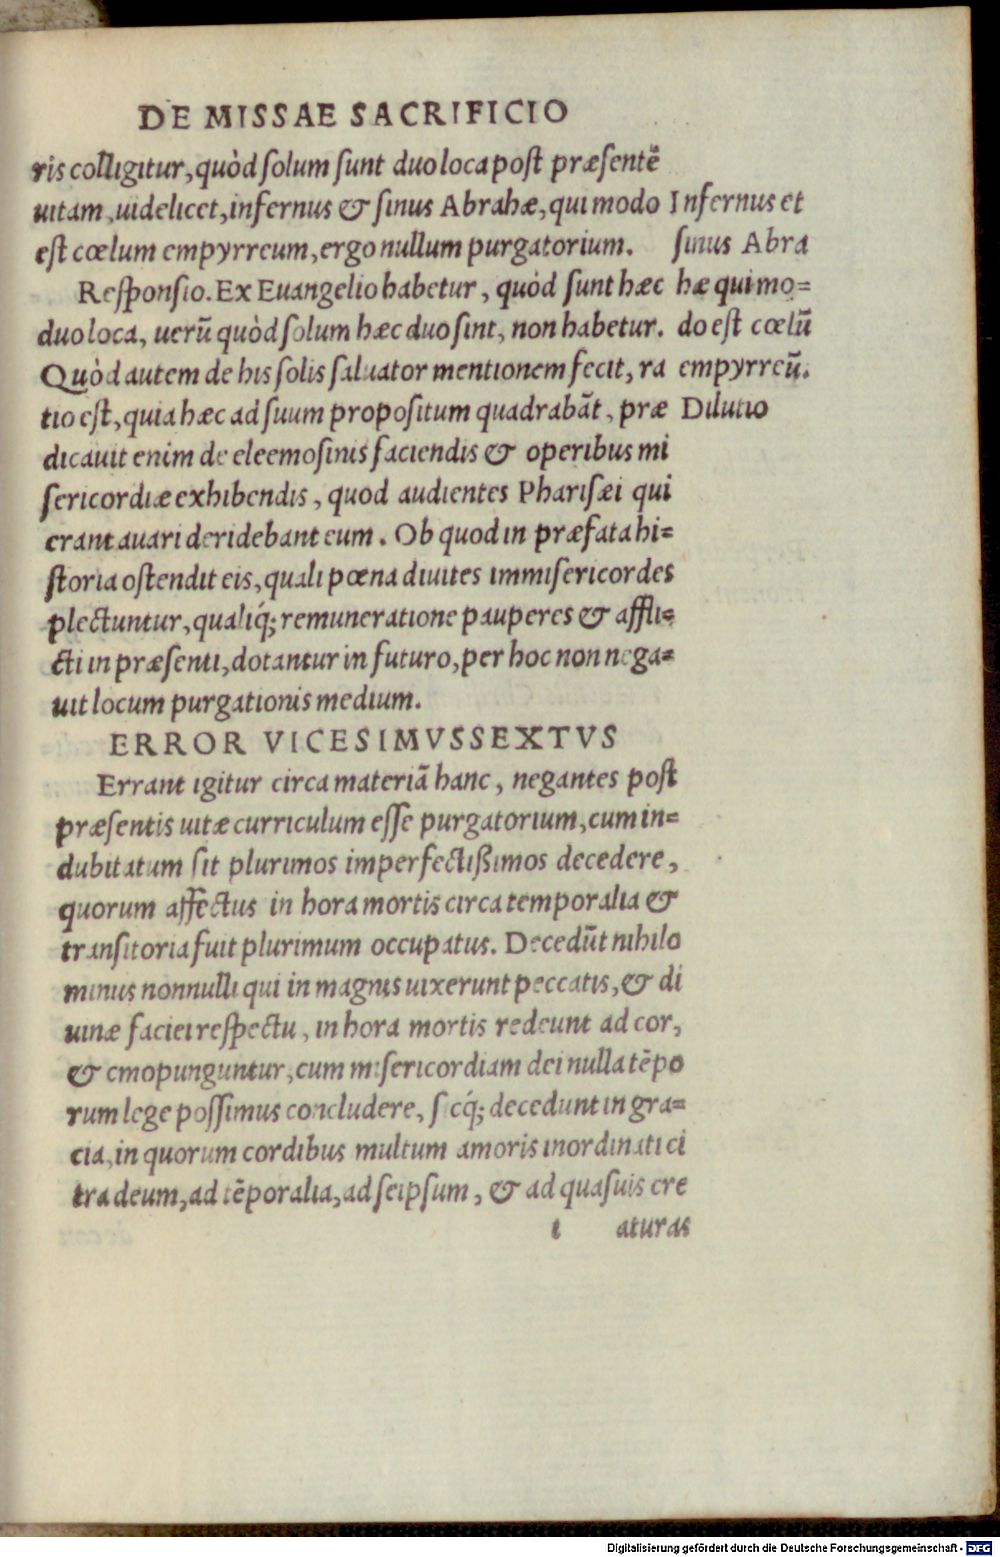 DE MISSAE SACRIFICIO
ris colligitur, quòd solum sunt duo loca post præsentẽ
uitam, uidelicet, infernus & sinus Abrahæ, qui modo
est cœlum empyrreum, ergo nullum purgatorium.
Infernus et
sinus Abra
hæ qui mo=
do est cœlũ
empyrreũ.
Dilutio
Responsio. Ex Euangelio habetur, quòd sunt hæc
duo loca, uerũ quòd solum hæc duo sint, non habetur.
Quòd autem de his solis saluator mentionem fecit, ra
tio est, quia hæc ad suum propositum quadrabãt, præ
dicauit enim de eleemosinis faciendis & operibus mi
sericordiæ exhibendis, quod audientes Pharisæi qui
erant auari deridebant eum. Ob quod in præfata hi=
storia ostendit eis, quali pœna diuites immisericordes
plectuntur, qualiq́; remuneratione pauperes & affli=
cti in præsenti, dotantur in futuro, per hoc non nega=
uit locum purgationis medium.
ERROR VICESIMVSSEXTVS
Errant igitur circa materiã hanc, negantes post
præsentis uitæ curriculum esse purgatorium, cum in=
dubitatum sit plurimos imperfectißimos decedere,
quorum affectus in hora mortis circa temporalia &
transitoria fuit plurimum occupatus. Decedũt nihilo
minus nonnulli qui in magnis uixerunt peccatis, & di
uinæ faciei respectu, in hora mortis redeunt ad cor,
& cmopunguntur, cum misericordiam dei nulla tẽpo
rum lege possimus concludere, sicq́; decedunt in gra=
cia, in quorum cordibus multum amoris inordinati ci
tra deum, ad tẽporalia, ad seipsum, & ad quasuis cre
i aturas
Digitalisierung gefördert durch die Deutsche Forschungsgemeinschaft - DFG